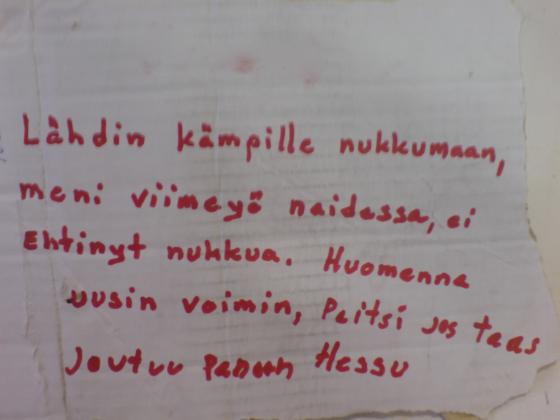 Lähdin kämpille nukkumaan,
meni viimeyö naidessa, ei
Ehtinyt nukkua. Huomenna
uusin voimin, Paitsi jos taas
Joutuu Panoon Hessu